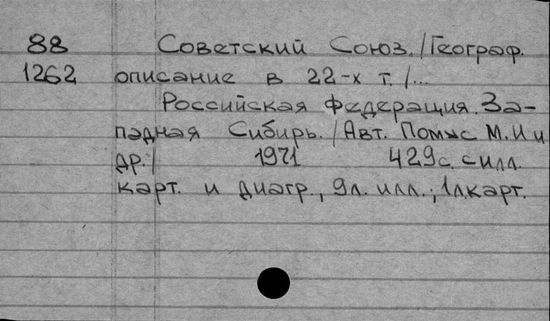 88 Советский Союз. /Географ.
1262 описание в 22-х т. /...
Российская Федерация. За-
падная Сибирь. /Авт. Помус М.И и
др./ 1971 429с. с илл.
карт. и диагр., 9л. илл.; 1л.карт.